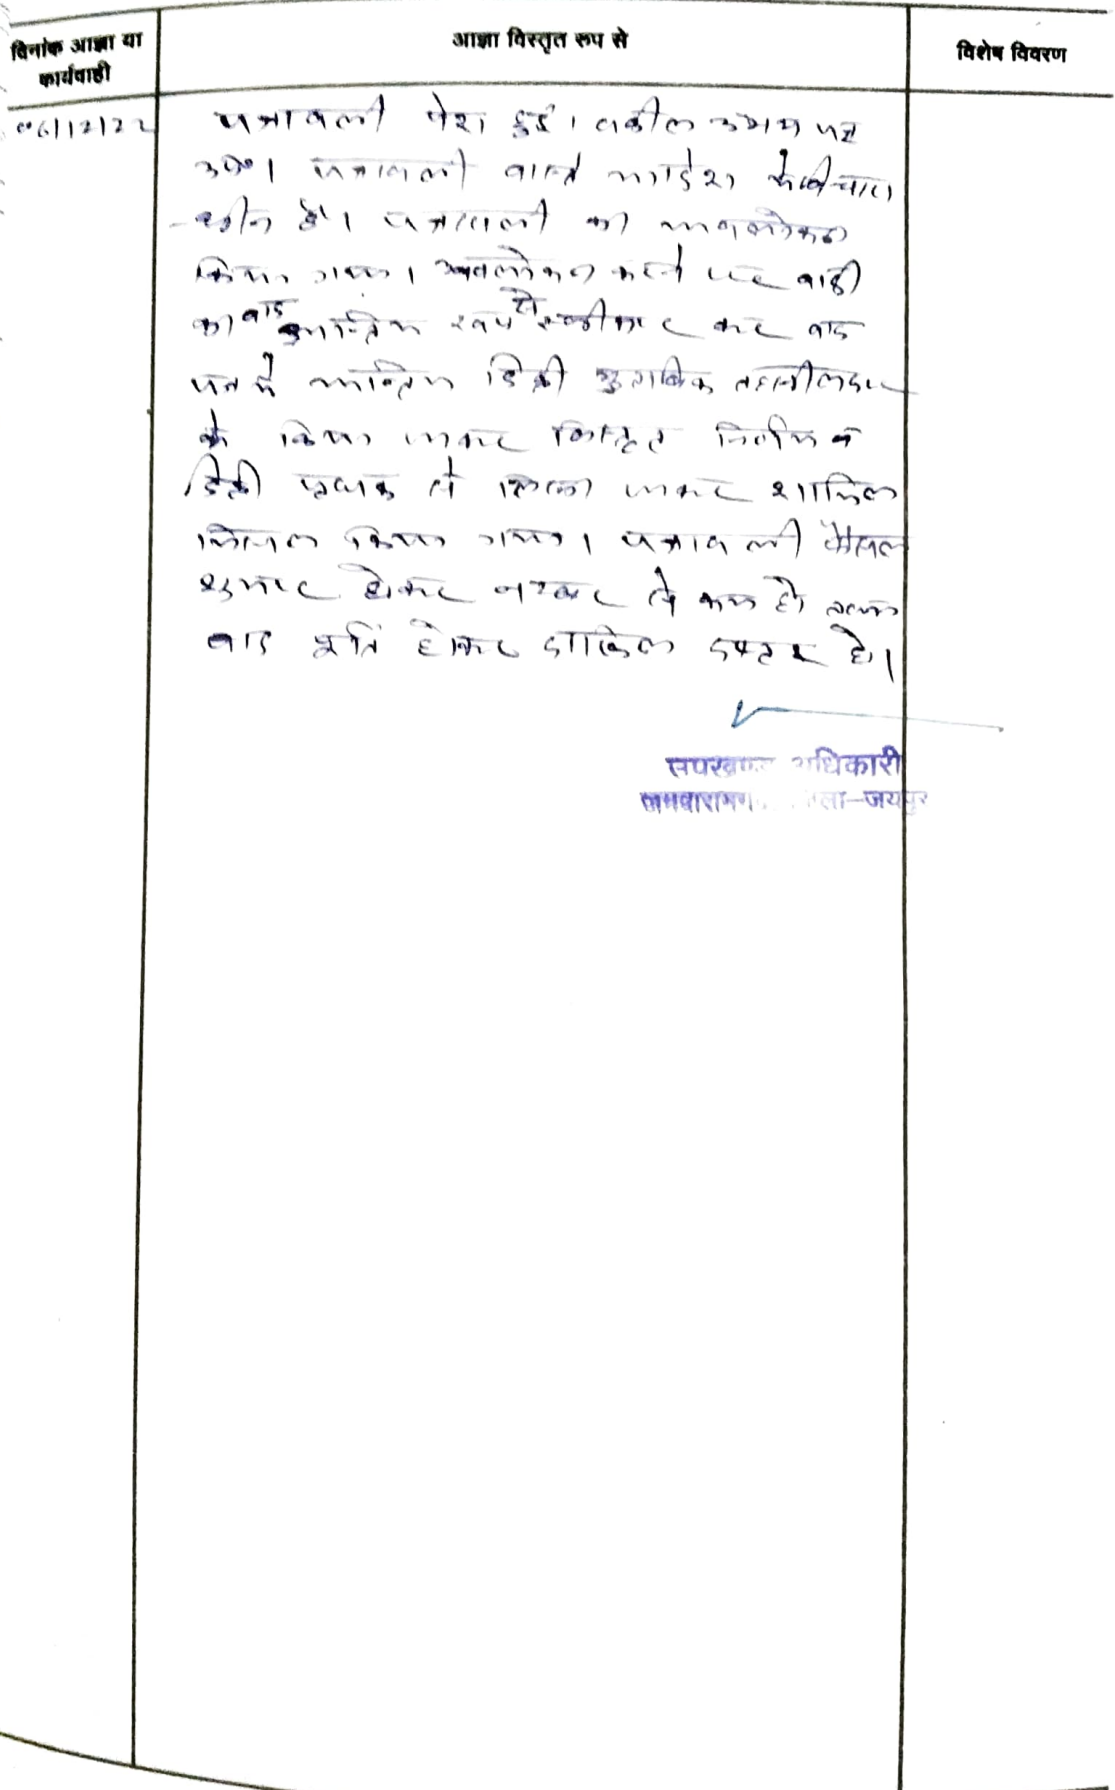 दिनांक आज्ञा या
कार्यवाही
आज्ञा विस्तृत रूप से
विशेष विवरण
06/12/22
पत्रावली पेश हुई। वकील उभय पक्ष
उप०। पत्रावली वास्ते आदेश के विचारा
धीन है। पत्रावली का अवलोकन
किया गया। अवलोकन करने पर वादी
का वाद अन्तिम रूप से स्वीकार कर वाद
पत्र में अन्तिम डिक्री मुताबिक तहसीलदार
के किया जाकर विस्तृत निर्णय व
डिक्री पृथक से लिखा जाकर शामिल
मिसल किया गया। पत्रावली फैसल
शुमार होकर नम्बर से कम हो
वाद पूर्ति होकर दाखिल दफ्तर हो।
उपखण्ड अधिकारी
जमवारामगढ़ जिला-जयपुर